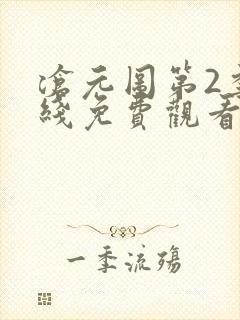 滄元圖第2季
綫免費觀看
一季流殤